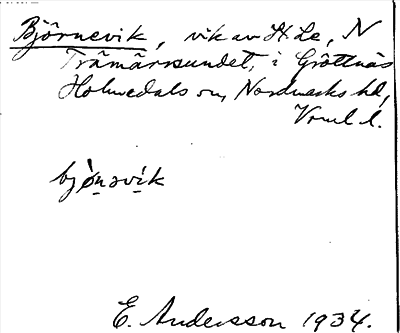 Björnevik, vik av St. Le, N
Trämärrsundet, i Gröttnäs
Holmedals sn, Nordmarks hd,
Vrml l.
bjö̀n̠əvi̠k
E. Andersson 1934.